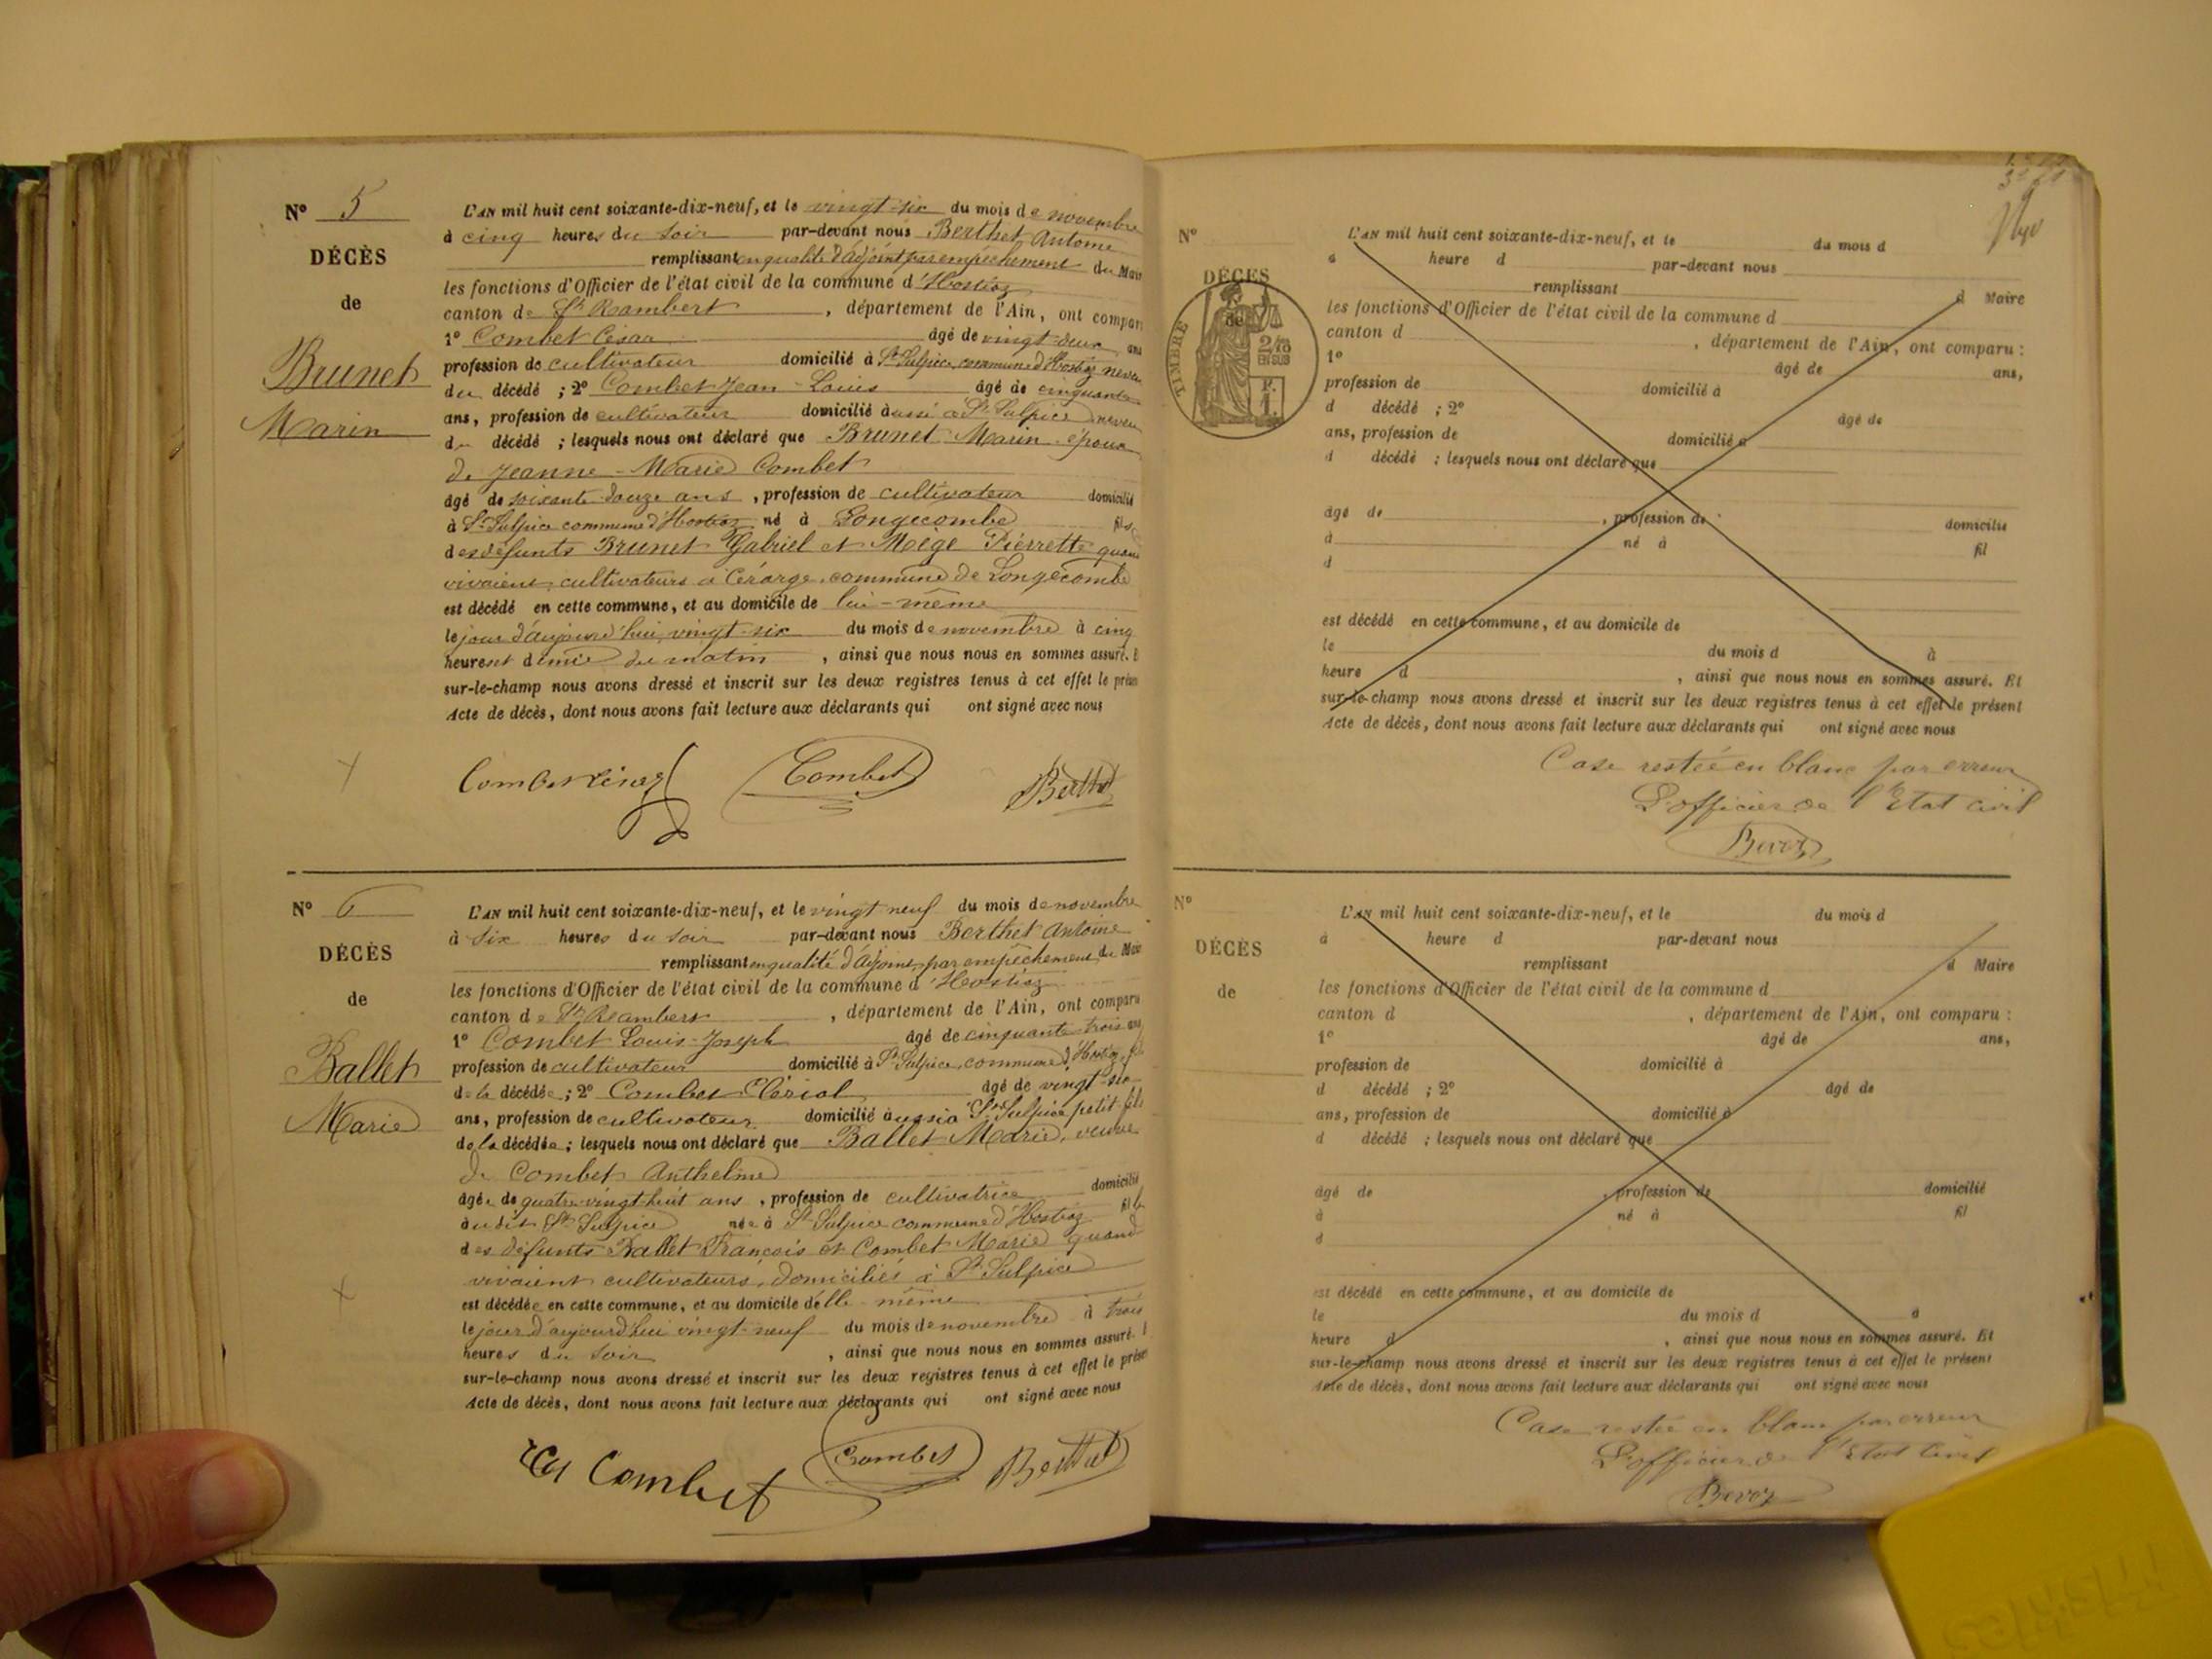 N° 5
DÉCÈS
de
Brunet
Marin
L'AN mil huit cent soixante-dix-neuf, et le vingt-six du mois de novembre
à cinq heures du soir par-devant nous Berthet Antoine
remplissant en qualité d'adjoint par empêchement du Maire
les fonctions d'Officier de l'état civil de la commune d'Hostiaz
canton de St Rambert, département de l'Ain, ont compar
1° Combet César âgé de vingt-deux ans
profession de cultivateur domicilié à St Sulpice, commune d'Hostiaz neveu
du décédé ; 2° Combet Jean-Louis âgé de cinquante
ans, profession de cultivateur domicilié aussi à St Sulpice neveu
du décédé ; lesquels nous ont déclaré que Brunet Marin époux
de Jeanne-Marie Combet
âgé de soixante douze ans, profession de cultivateur domicilié
à St Sulpice commune d'Hostiaz né à Longecombe fils
des défunts Brunet Gabriel et Mège Pierrette quand
vivaient cultivateurs à Cérarge, commune de Longecombe
est décédé en cette commune, et au domicile de lui-même
le jour d'aujourd'hui vingt-six du mois de novembre à cinq
heures et demie du matin, ainsi que nous nous en sommes assuré. E
sur-le-champ nous avons dressé et inscrit sur les deux registres tenus à cet effet le prése
Acte de décès, dont nous avons fait lecture aux déclarants qui ont signé avec nous
Combet César Combet Berthet
N° 6
DÉCÈS
de
Ballet
Marie
L'AN mil huit cent soixante-dix-neuf, et le vingt neuf du mois de novembre
à six heures du soir par-devant nous Berthet Antoine
remplissant en qualité d'adjoint par empêchement du Mai
les fonctions d'Officier de l'état civil de la commune d'Hostiaz
canton de St Rambert, département de l'Ain, ont comparu
1° Combet Louis-Joseph âgé de cinquante trois ans
profession de cultivateur domicilié à St Sulpice, commune d'Hostiaz, fils
de la décédée ; 2° Combet âgé de vingt-six
ans, profession de cultivateur domicilié aussi à St Sulpice petit-fils
de la décédée ; lesquels nous ont déclaré que Ballet Marie, veuve
de Combet Anthelme
âgée de quatre-vingt huit ans, profession de cultivatrice domicilié
au dit St Sulpice née à St Sulpice commune d'Hostiaz fille
des défunts Ballet François et Combet Marie quand
vivaient cultivateurs, domiciliés à St Sulpice
est décédée en cette commune, et au domicile d'elle-même
le jour d'aujourd'hui vingt-neuf du mois de novembre à trois
heures du soir, ainsi que nous nous en sommes assuré. E
sur-le-champ nous avons dressé et inscrit sur les deux registres tenus à cet effet le prése
Acte de décès, dont nous avons fait lecture aux déclarants qui ont signé avec nous
Combet Combet Berthet
N°
DÉCÈS
de
TIMBRE
2/10
EN SUS
L'AN mil huit cent soixante-dix-neuf, et le du mois d
à heure d par-devant nous
remplissant d Maire
les fonctions d'Officier de l'état civil de la commune d
canton d , département de l'Ain, ont comparu :
1° âgé de ans,
profession de domicilié à
d décédé ; 2° âgé de
ans, profession de domicilié à
d décédé ; lesquels nous ont déclaré que
âgé de , profession de domicilié
à né à fil
d
est décédé en cette commune, et au domicile de
le du mois d à
heure d , ainsi que nous nous en sommes assuré. Et
sur-le-champ nous avons dressé et inscrit sur les deux registres tenus à cet effet le présent
Acte de décès, dont nous avons fait lecture aux déclarants qui ont signé avec nous
Case restée en blanc par erreur
L'officier de l'Etat civil
N°
DÉCÈS
de
L'AN mil huit cent soixante-dix-neuf, et le du mois d
à heure d par-devant nous
remplissant d Maire
les fonctions d'Officier de l'état civil de la commune d
canton d , département de l'Ain, ont comparu :
1° âgé de ans,
profession de domicilié à
d décédé ; 2° âgé de
ans, profession de domicilié à
d décédé ; lesquels nous ont déclaré que
âgé de , profession de domicilié
à né à fil
d
est décédé en cette commune, et au domicile de
le du mois d à
heure d , ainsi que nous nous en sommes assuré. Et
sur-le-champ nous avons dressé et inscrit sur les deux registres tenus à cet effet le présent
Acte de décès, dont nous avons fait lecture aux déclarants qui ont signé avec nous
Case restée en blanc par erreur
L'officier de l'Etat civil